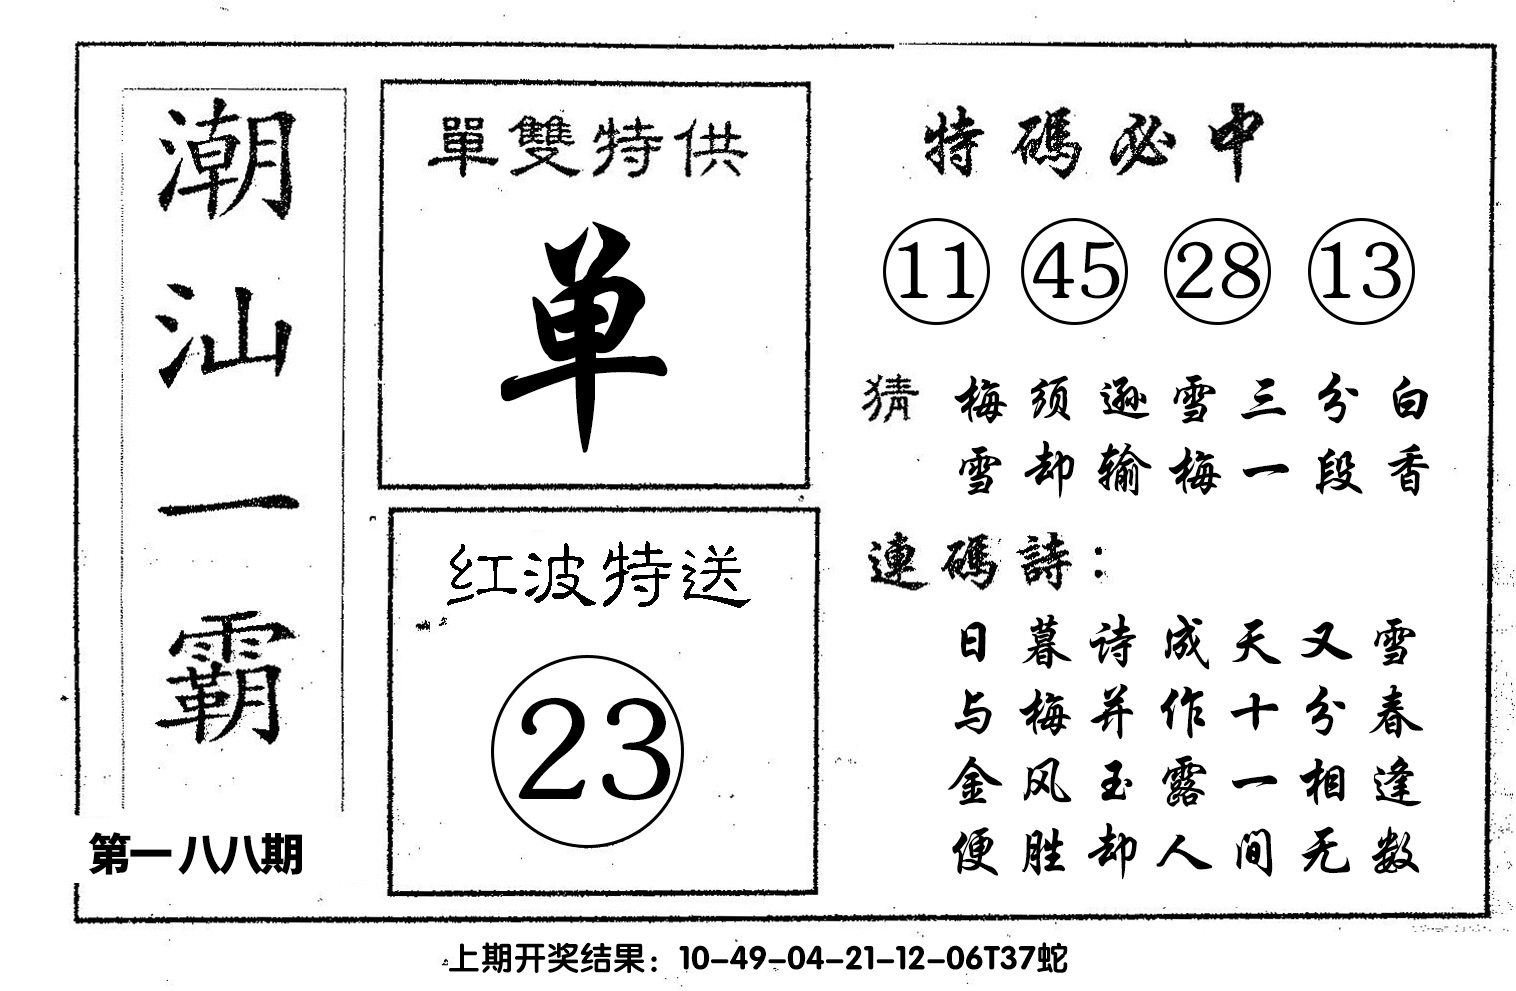 潮汕一霸
第一八八期
單雙特供
单
红波特送
23
特碼必中
11 45 28 13
猜 梅须逊雪三分白
雪却输梅一段香
連碼詩：
日暮诗成天又雪
与梅并作十分春
金风玉露一相逢
便胜却人间无数
上期开奖结果：10-49-04-21-12-06T37蛇